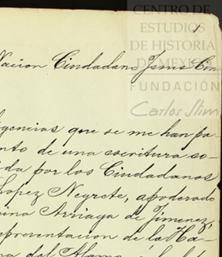 CENTRO DE
ESTUDIOS
DE HISTORIA
DE MÉXICO
FUNDACIÓN
Carlos Slim
1
Nacion Ciudadano
gencias que se me han pa
nto de una escritura so
da por los Ciudadanos
Lopez Negrete, apoderado
una Arriaga de Jimenez
representacion de la Ha
del Alamo